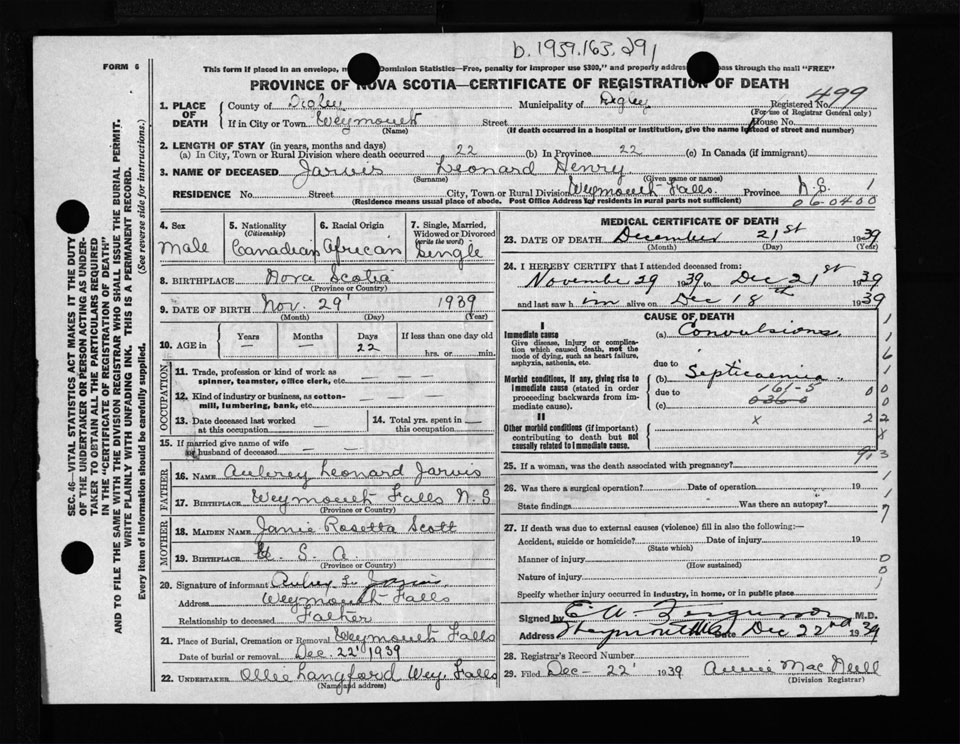 b. 1939.163.291
FORM 6
This form if placed in an envelope, Dominion Statistics—Free, penalty for improper use $300," and properly pass through the mail "FREE"
PROVINCE OF NOVA SCOTIA—CERTIFICATE OF REGISTRATION OF DEATH
1. PLACE OF DEATH
County of Digby Municipality of Digby Registered No. 499
(For use of Registrar General only)
If in City or Town Weymouth Street House No.
(Name) (If death occurred in a hospital or institution, give the name instead of street and number)
2. LENGTH OF STAY (in years, months and days)
(a) In City, Town or Rural Division where death occurred 22 (b) In Province 22 (c) In Canada (if immigrant)
3. NAME OF DECEASED Jarvis Leonard Henry
(Surname) (Given name or names)
RESIDENCE No. Street City, Town or Rural Division Weymouth Falls. Province N.S. 1
(Residence means usual place of abode. Post Office Address for residents in rural parts not sufficient) 060400
4. Sex
male
5. Nationality
(Citizenship)
Canadian
6. Racial Origin
African
7. Single, Married, Widowed or Divorced
(write the word)
Single
8. BIRTHPLACE Nova Scotia
(Province or Country)
9. DATE OF BIRTH Nov. 29' 1939
(Month) (Day) (Year)
10. AGE in
Years Months Days If less than one day old
— — 22 hrs. or min.
OCCUPATION
11. Trade, profession or kind of work as spinner, teamster, office clerk, etc. — — —
12. Kind of industry or business, as cotton-mill, lumbering, bank, etc. — — —
13. Date deceased last worked at this occupation —
14. Total yrs. spent in this occupation. —
15. If married give name of wife or husband of deceased — —
FATHER
16. NAME Aubrey Leonard Jarvis
17. BIRTHPLACE Weymouth Falls N.S.
(Province or Country)
MOTHER
18. MAIDEN NAME Janie Rosetta Scott
19. BIRTHPLACE U. S. A.
(Province or Country)
20. Signature of informant Aubrey L. Jarvis
Address Weymouth Falls
Relationship to deceased Father
21. Place of Burial, Cremation or Removal Weymouth Falls
Date of burial or removal Dec. 22' 1939
22. UNDERTAKER Ollie Langford Wey. Falls
(Name and address)
MEDICAL CERTIFICATE OF DEATH
23. DATE OF DEATH December 21st 1939
(Month) (Day) (Year)
24. I HEREBY CERTIFY that I attended deceased from:
November 29 1939 to Dec 21st 1939
and last saw him alive on Dec 18th 1939
CAUSE OF DEATH
I
Immediate cause
Give disease, injury or complication which caused death, not the mode of dying, such as heart failure, asphyxia, asthenia, etc.
(a) Convulsions.
due to
Morbid conditions, if any, giving rise to immediate cause (stated in order proceeding backwards from immediate cause).
(b) Septicaemia.
due to 161-5
(c) 0360
II
Other morbid conditions (if important) contributing to death but not causally related to immediate cause.
x
25. If a woman, was the death associated with pregnancy?
26. Was there a surgical operation? Date of operation 19
State findings Was there an autopsy?
27. If death was due to external causes (violence) fill in also the following:—
Accident, suicide or homicide? Date of injury 19
(State which)
Manner of injury
(How sustained)
Nature of injury
Specify whether injury occurred in industry, in home, or in public place
Signed by E. W. Ferguson M.D.
Address Weymouth Date Dec 22nd 1939
28. Registrar's Record Number
29. Filed Dec- 22' 1939 Annie MacNeill
(Division Registrar)
SEC. 46—VITAL STATISTICS ACT MAKES IT THE DUTY
OF THE UNDERTAKER OR PERSON ACTING AS UNDER-
TAKER TO OBTAIN ALL THE PARTICULARS REQUIRED
IN THE "CERTIFICATE OF REGISTRATION OF DEATH"
AND TO FILE THE SAME WITH THE DIVISION REGISTRAR WHO SHALL ISSUE THE BURIAL PERMIT.
WRITE PLAINLY WITH UNFADING INK. THIS IS A PERMANENT RECORD.
Every item of information should be carefully supplied. (See reverse side for instructions.)